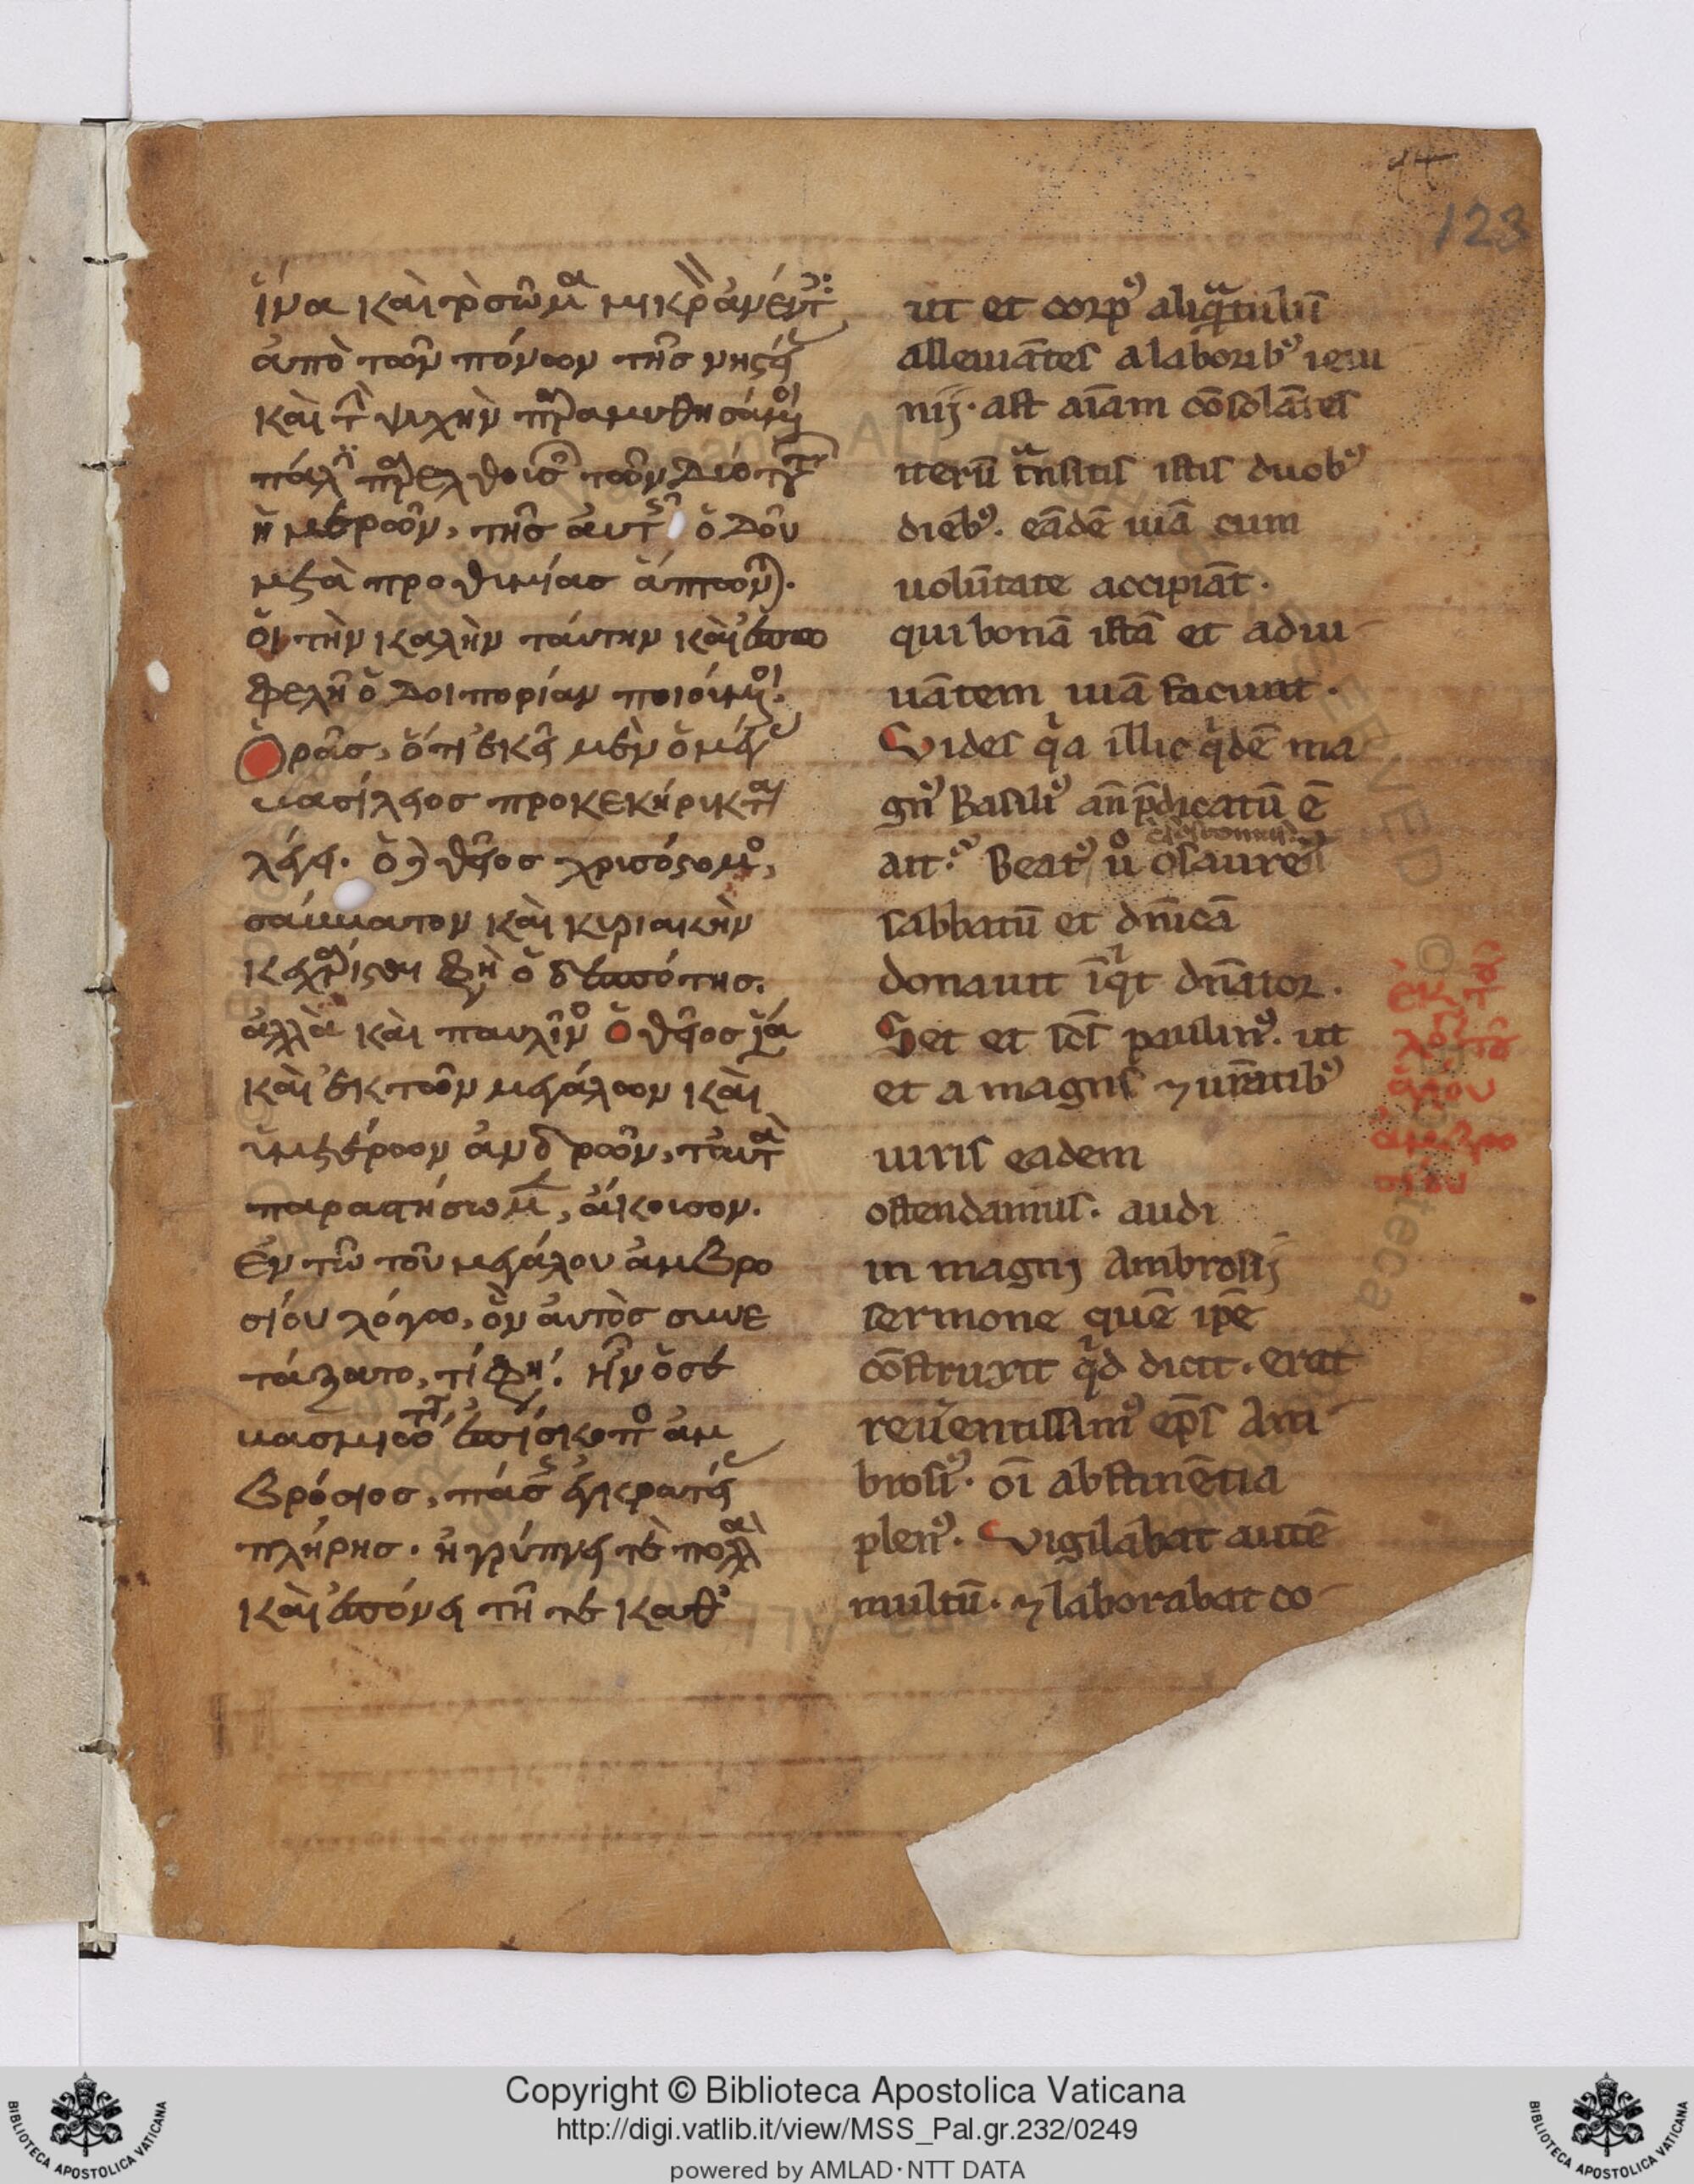 123
ἵνα καὶ τὸ σῶμα μικρὸν ἀνέντες
ἀπὸ τῶν πόνων τῆς νηστείας
καὶ τὴν ψυχὴν παραμυθησάμενοι
πάλιν παρελθουσῶν τῶν δύο τούτων
ἡμερῶν, τῆς αὐτῆς ὁδοῦ
μετὰ προθυμίας ἅπτωνται.
οἱ τὴν καλὴν ταύτην καὶ ἐπω
φελῆ ὁδοιπορίαν ποιούμενοι.
Ὁρᾶς, ὅτι ἐκεῖ μὲν ὁ μέγας
βασίλειος προκεκήρυκται
λέγει. ὁ δὲ θεῖος χρυσόστομος,
σάββατον καὶ κυριακὴν
κεχάρισται φησὶ ὁ δεσπότης.
ἀλλὰ καὶ παυλῖνος ὁ θεῖος ἵνα
καὶ ἐκ τῶν μεγάλων καὶ
ὑμετέρων ἀνδρῶν, ταῦτα
παραστήσωμεν, ἄκουσον.
Ἐν τῶ τοῦ μεγάλου ἀμβρο
σίου λόγω, ὃν αὐτὸς συνε
τάξατο, τί φησί. ἦν ὁ σε
βασμιώτατος ἐπίσκοπος ἀμ
βρόσιος, πάσης ἐγκρατείας
πλήρης. ἠγρύπνει τὲ πολλὰ
καὶ ἐπόνει τῆ τε καθ'
ut et corpus aliquantulum
alleuiantes a laboribus ieiu
nij. ast animam consolantes
iterum transitis istis duobus
diebus. eandem uiam cum
uoluntate accipiant.
qui bonam istam et adiu
uantem uiam faciunt.
Vides quia illic quidem ma
gnus Basilius ante predicatum est
ait. Beatus uero osaureus
sabbatum et dominicam
donauit inquit dominator.
Set et sanctus paulinus. ut
et a magnis et uestratibus
uiris eadem
ostendamus. audi
in magnj Ambrosij
sermone quem ipse
construxit quid dicit. erat
reuerentissimus episcopus Am
brosius. omni abstinentia
plenus. Vigilabat autem
multum. et laborabat co
ἐκ τοῦ
λόγου τοῦ
ἁγίου
ἀμβρο
σίου
Copyright © Biblioteca Apostolica Vaticana
http://digi.vatlib.it/view/MSS_Pal.gr.232/0249
powered by AMLAD·NTT DATA
BIBLIOTECA APOSTOLICA VATICANA
BIBLIOTECA APOSTOLICA VATICANA